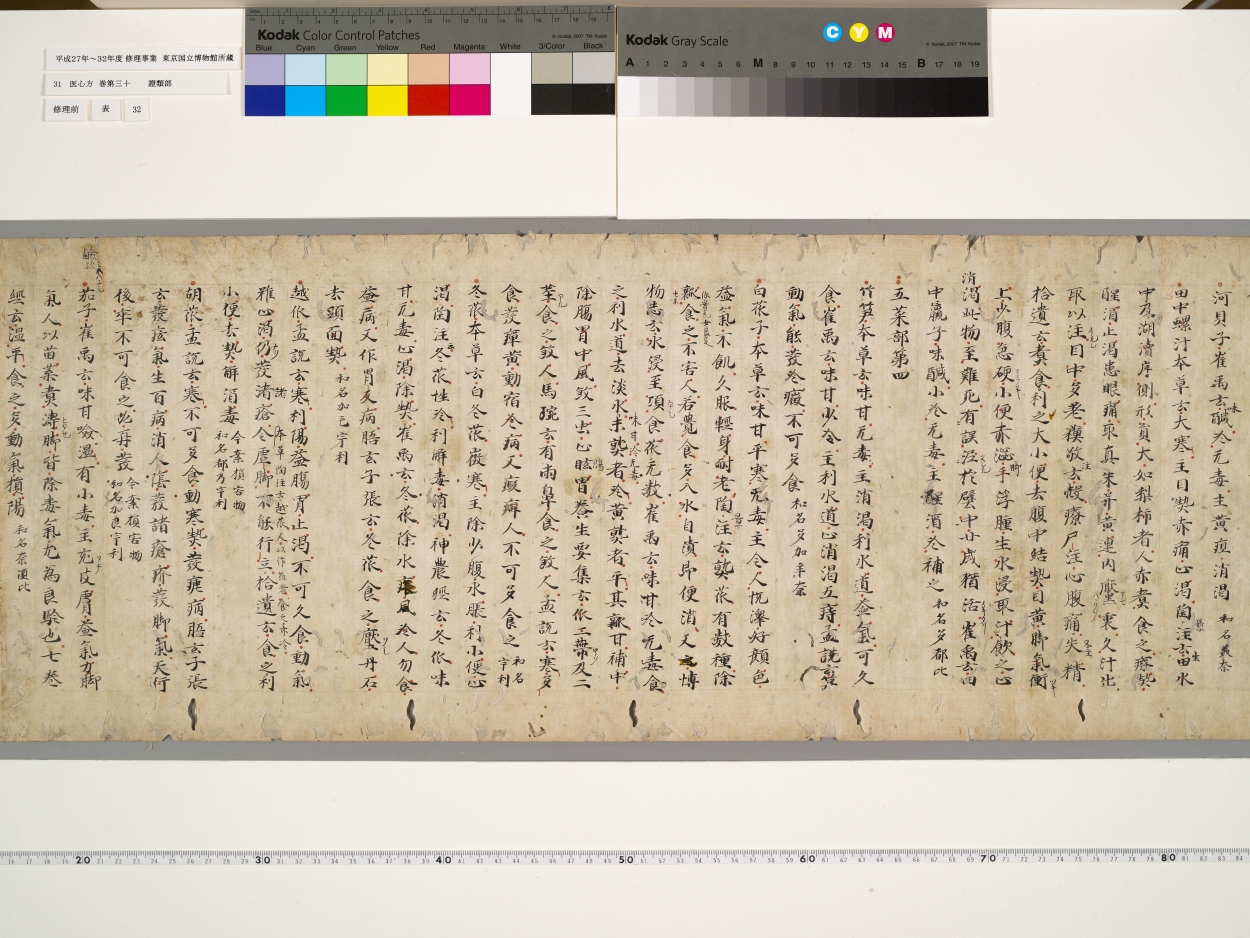 平成27年～32年度 修理事業 東京国立博物館所蔵
31 医心方 巻第三十 證類部
修理前 表 32
Kodak Color Control Patches
© Kodak, 2007 TM: Kodak
Blue Cyan Green Yellow Red Magenta White 3/Color Black
Kodak Gray Scale
C Y M
© Kodak, 2007 TM: Kodak
A 1 2 3 4 5 6 M 8 9 10 11 12 13 14 15 B 17 18 19
河貝子崔禹云味醎冷无毒主黄疸消渴 和名美奈
田中螺汁本草云大寒主目熱赤痛止渴陶注云生田水
中及湖瀆岸側形員大如梨柿者人亦煮食之療熱
醒酒止渴患眼痛取真末并黄連内壓裹久汁出
取以注目中多差殻教云殻療尸注心腹痛失精
拾遺云煮食利之大小便去腹中結熱目黄脚氣衝
上少腹急硬小便赤澁手脚浮腫生水浸取汁飲之止
消渴此物至難死有誤泥於壁中廿歳猶活崔禹云田
中蠃子味醎小冷无毒主醒酒冷補之 和名多都比
五菜部第四
竹笋本草云味甘无毒主消渴利水道益氣可久
食崔禹云味甘少冷主利水道止消渴五痔孟詵云
動氣能發冷癥不可多食 和名多加牟奈
白苽子本草云味甘平寒无毒主令人悦澤好顔色
益氣不飢久服輕身耐老陶注云熟苽有數種除
瓤食之不害人若覺食多入水自漬即便消又云博
物志云水浸至項食苽无數崔禹云味甘冷无毒食
之利水道去淡水未熟者冷黄熟者平其瓤甘補中
除腸胃中風殺三虫止眩冒養生要集云苽二帶及二
莖食之殺人馬琬云有兩鼻食之殺人孟詵云寒多
食發癉黄動宿冷病又瘕癖人不可多食之 和名宇利
冬苽本草云白冬苽微寒主除少腹水脹利小便止
渴陶注云冬苽性冷利解毒消渴神農經云冬苽味
甘无毒止渴除熱崔禹云冬苽除水風冷人勿食
益病又作胃反病膳玄子張云冬苽食之壓丹石
去頭面熱 和名加毛宇利
越苽孟詵云寒利陽益腸胃止渴不可久食動氣
雖止渴仍發諸瘡令虚脚不能行立拾遺云食之利
小便去熱解酒毒
胡苽孟詵云寒不可多食動寒熱發瘧病膳玄子張
云發痃氣生百病消人陰發諸瘡疥發脚氣天行
後卒不可食之必再發
茄子崔禹云味甘噞温有小毒主充皮膚益氣力脚
氣人以苗葉煮濤脚皆除毒氣尤為良驗也七巻
經云温平食之多動氣損陽 和名奈須比
20 30 40 50 60 70 80